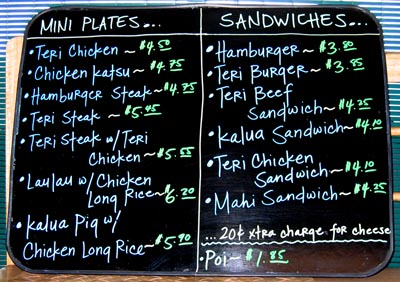 MINI PLATES...
• Teri Chicken ~ $4.50
• Chicken Katsu ~ $4.75
• Hamburger Steak ~ $4.75
• Teri Steak ~ $5.45
• Teri Steak w/ Teri
Chicken ~ $5.55
• Laulau w/ Chicken
Long Rice ~ $6.20
• Kalua Pig w/
Chicken Long Rice ~ $5.90
SANDWICHES...
• Hamburger ~ $3.80
• Teri Burger ~ $3.85
• Teri Beef
Sandwich ~ $4.25
• Kalua Sandwich ~ $4.10
• Teri Chicken
Sandwich ~ $4.10
• Mahi Sandwich ~ $4.25
... 20¢ xtra charge for cheese
• Poi ~ $1.85